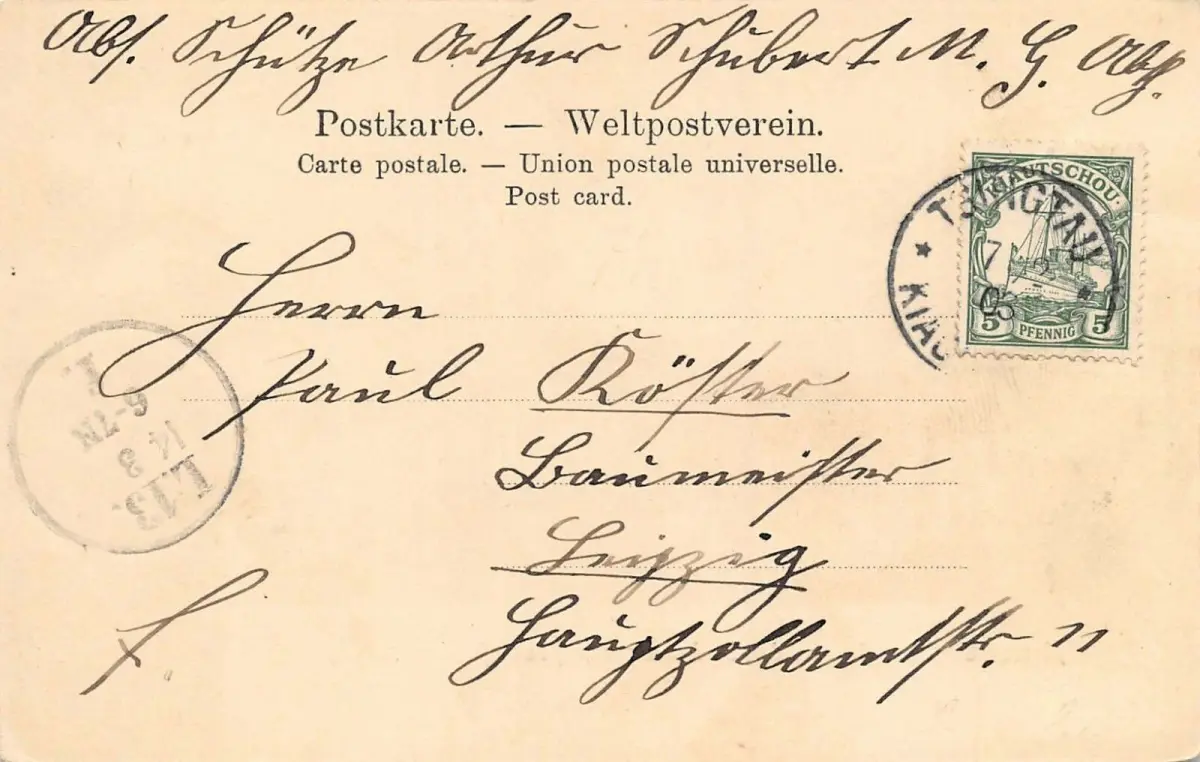 Abs. Schütze Arthur Schubert M. G. Abt.
Postkarte. — Weltpostverein.
Carte postale. — Union postale universelle.
Post card.
KIAUTSCHOU
5 PFENNIG 5
TSINGTAU
7 2
05
KIAU
Herrn
Paul Köster
Baumeister
Leipzig
Hauptzollamtstr. 11
L.13.
14 3
6-7N